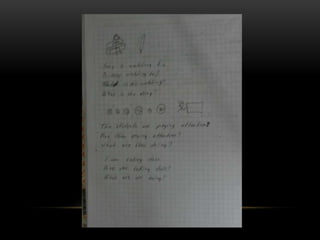 Sury is watching t.v
Is Sury watching tv?
is she watching?
What is she doing?
The students are paying attention?
Are they paying attention?
What are they doing?
I am taking class
Are you taking class?
What are we doing?